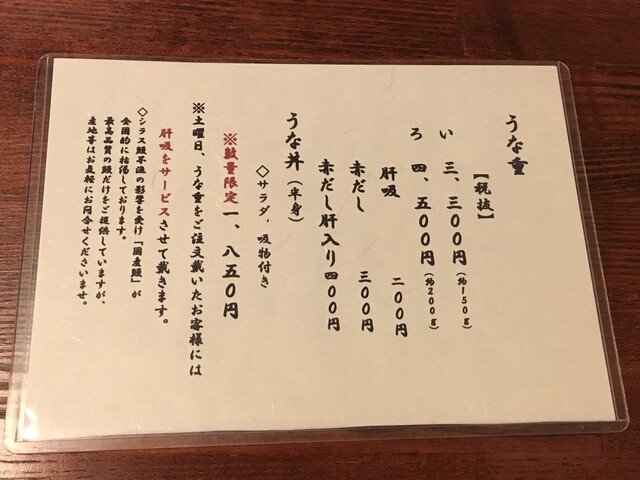 うな重
【税抜】
い 三、三〇〇円（約150g）
ろ 四、五〇〇円（約200g）
肝吸 二〇〇円
赤だし 三〇〇円
赤だし肝入り 四〇〇円
うな丼（半身）
◇サラダ、吸物付き
※数量限定 一、八五〇円
※土曜日、うな重をご注文戴いたお客様には
肝吸をサービスさせて戴きます。
◇シラス鰻不漁の影響を受け「国産鰻」が
全国的に枯渇しております。
最高品質の鰻だけをご提供していますが、
産地等はお気軽にお問合せくださいませ。